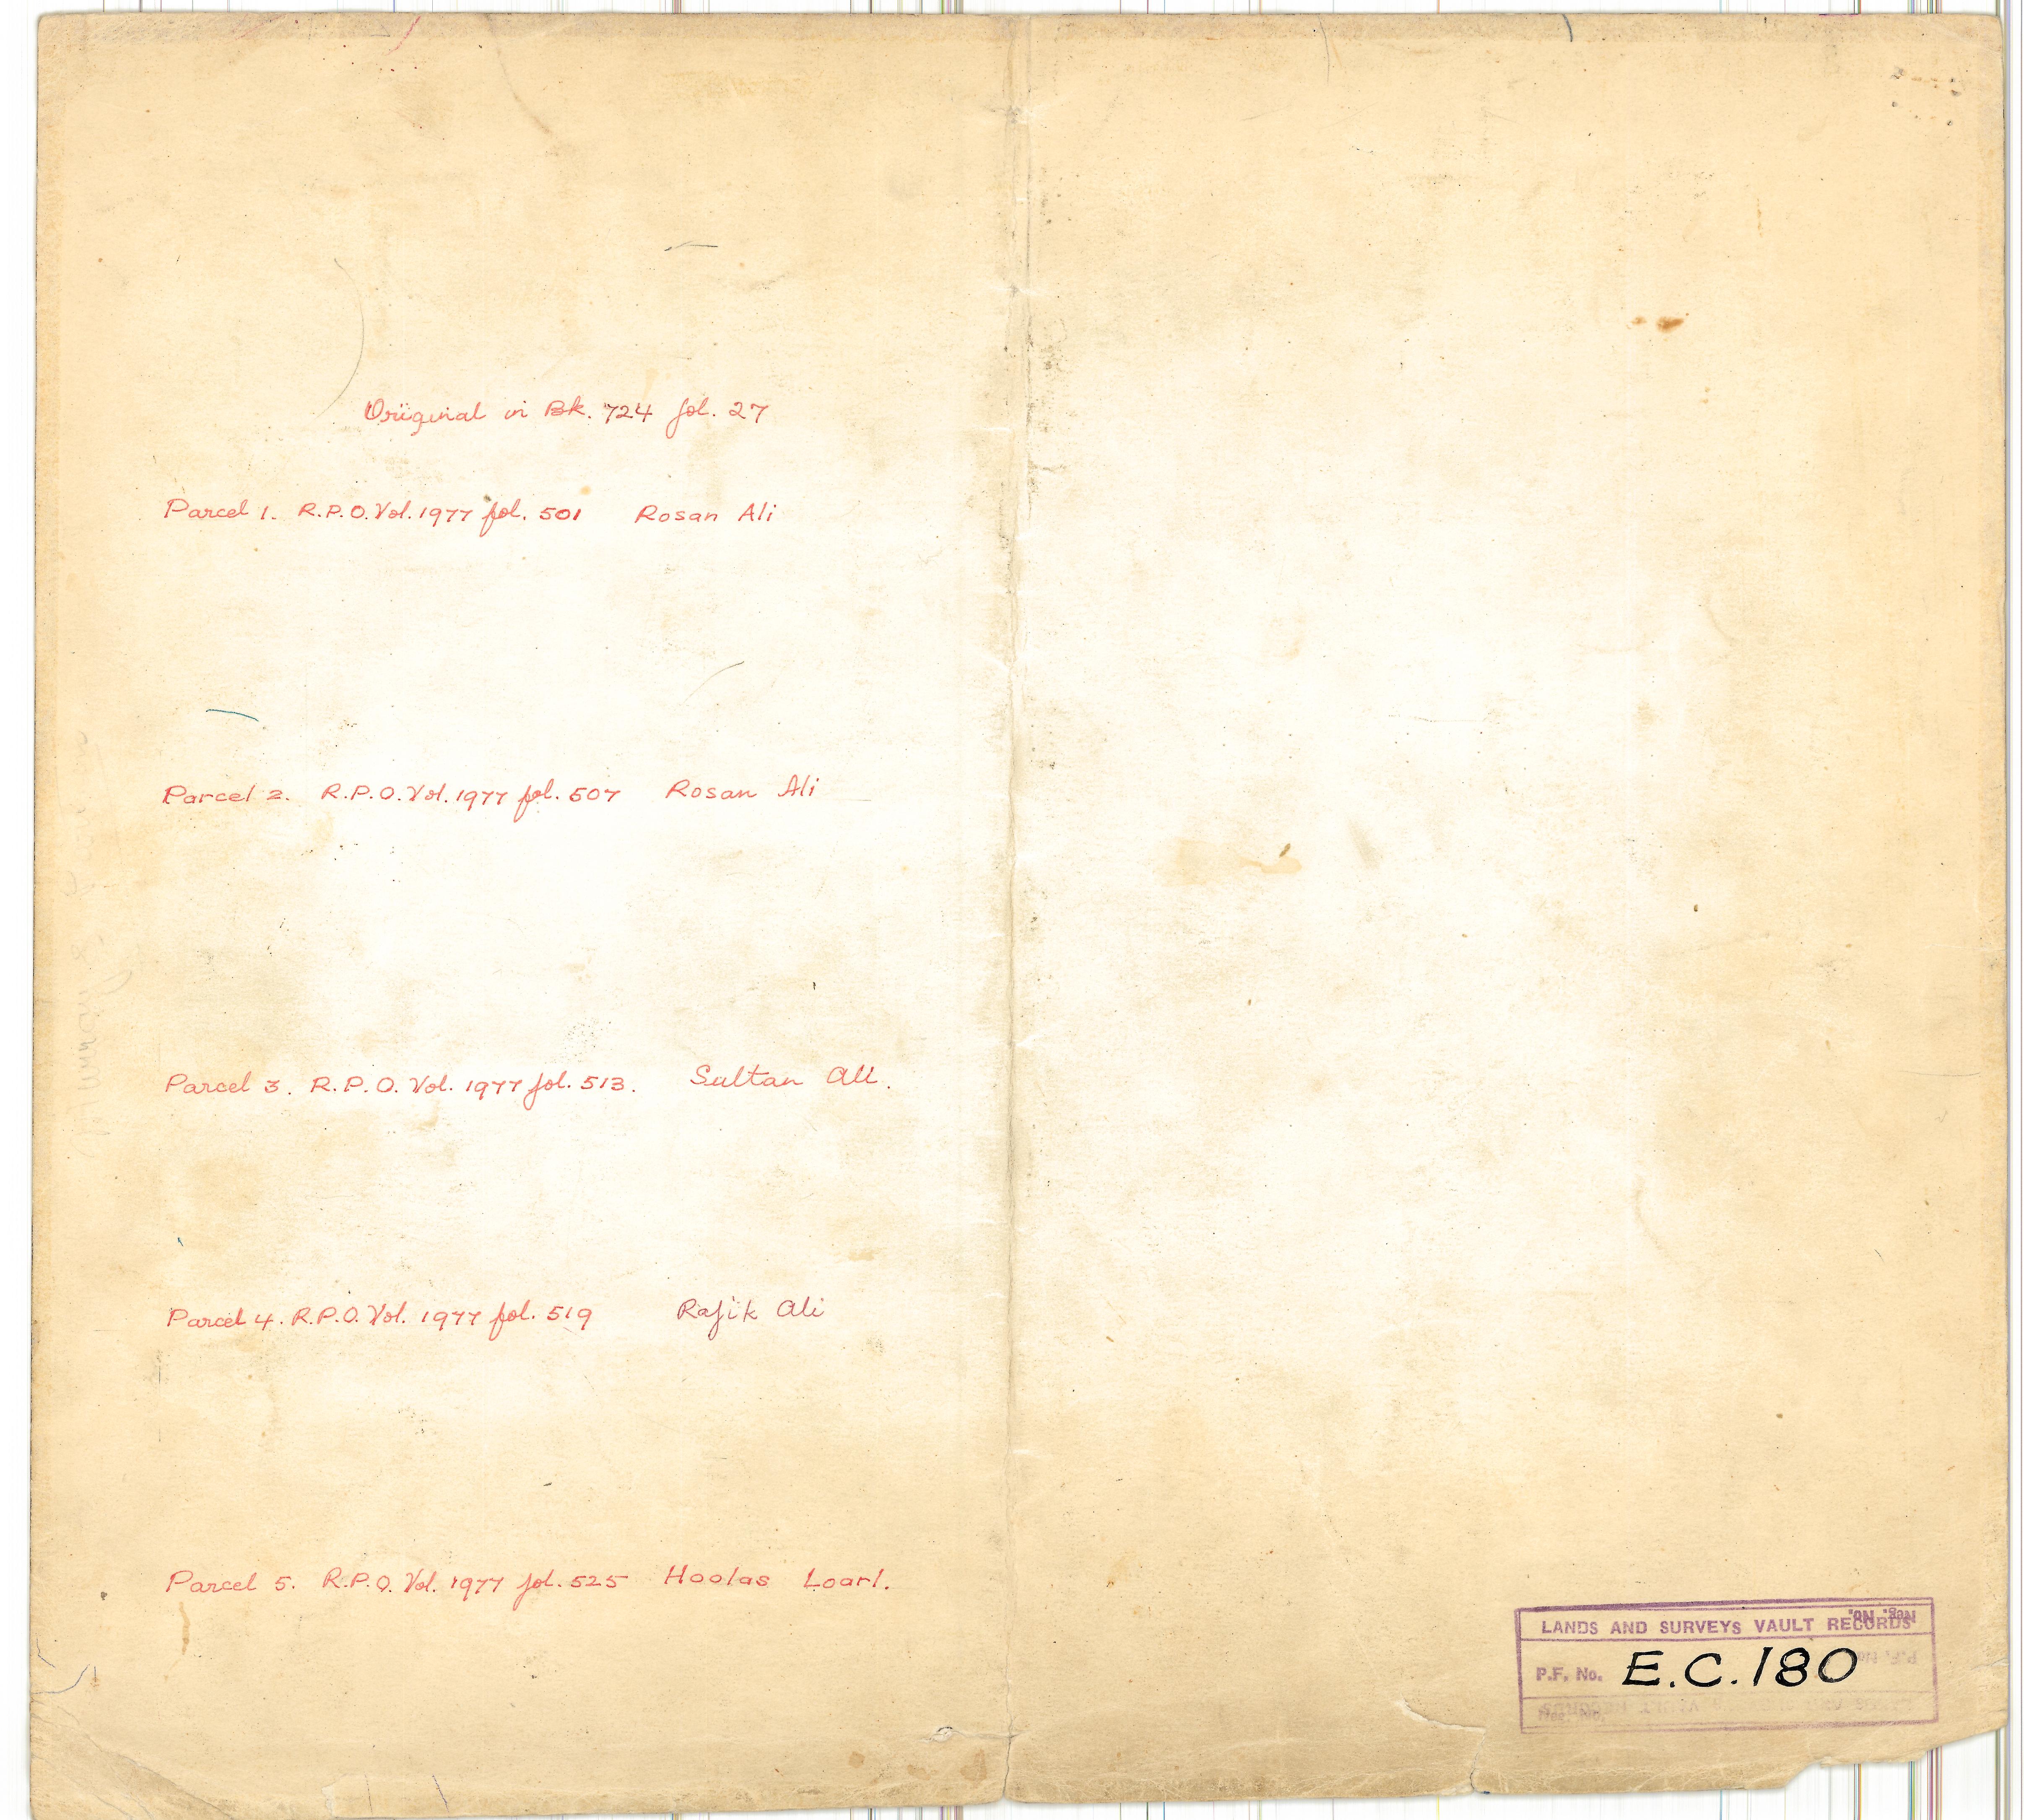 Original in Bk. 724 fol. 27
Parcel 1. R.P.O. Vol. 1977 fol. 501 Rosan Ali
Parcel 2. R.P.O. Vol. 1977 fol. 507 Rosan Ali
Parcel 3. R.P.O. Vol. 1977 fol. 513. Sultan Ali.
Parcel 4. R.P.O. Vol. 1977 fol. 519 Rafik Ali
Parcel 5. R.P.O. Vol. 1977 fol. 525 Hoolas Loarl.
LANDS AND SURVEYS VAULT RECORDS
P.F. No. E.C.180
Reg. No.